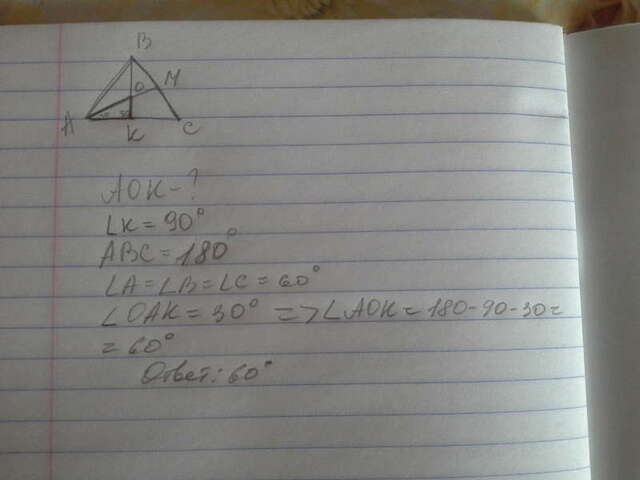 B
O M
A K C
AOK - ?
∠K = 90°
ABC = 180°
∠A = ∠B = ∠C = 60°
∠OAK = 30° => ∠AOK = 180 - 90 - 30 =
= 60°
Ответ: 60°